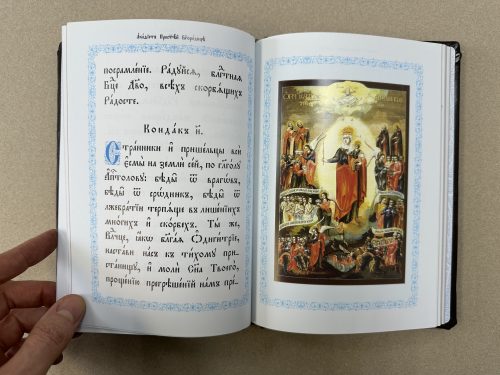 Акаѳістъ Пресвѧтѣй Богородицѣ
посрамленїе. Ра́дꙋйсѧ, бл҃года́тнаѧ
Бц҃е Дв҃о, всѣ́хъ скорбѧ́щихъ
Ра́досте.
Конда́къ и҃.
Стра́нники и҆ прише́льцы всѝ
є҆смы̀ на землѝ се́й, по гл҃го́лꙋ
А҆пⷭ҇толовꙋ: бѣды̀ ѿ врагѡ́въ,
бѣды̀ ѿ сро́дникъ, бѣды̀ ѿ
лжебра́тїи терпѧ́ще въ лише́нїихъ
мно́гихъ и҆ ско́рбехъ. Ты́ же,
Влⷣчце, ꙗ҆́кѡ бл҃га́ѧ Ѻ҆диги́трїѧ,
наста́ви на́съ къ ти́хомꙋ при-
ста́нищꙋ, и҆ молѝ Сн҃а Твоего̀,
проще́нїю прегрѣше́нїй на́мъ прї-